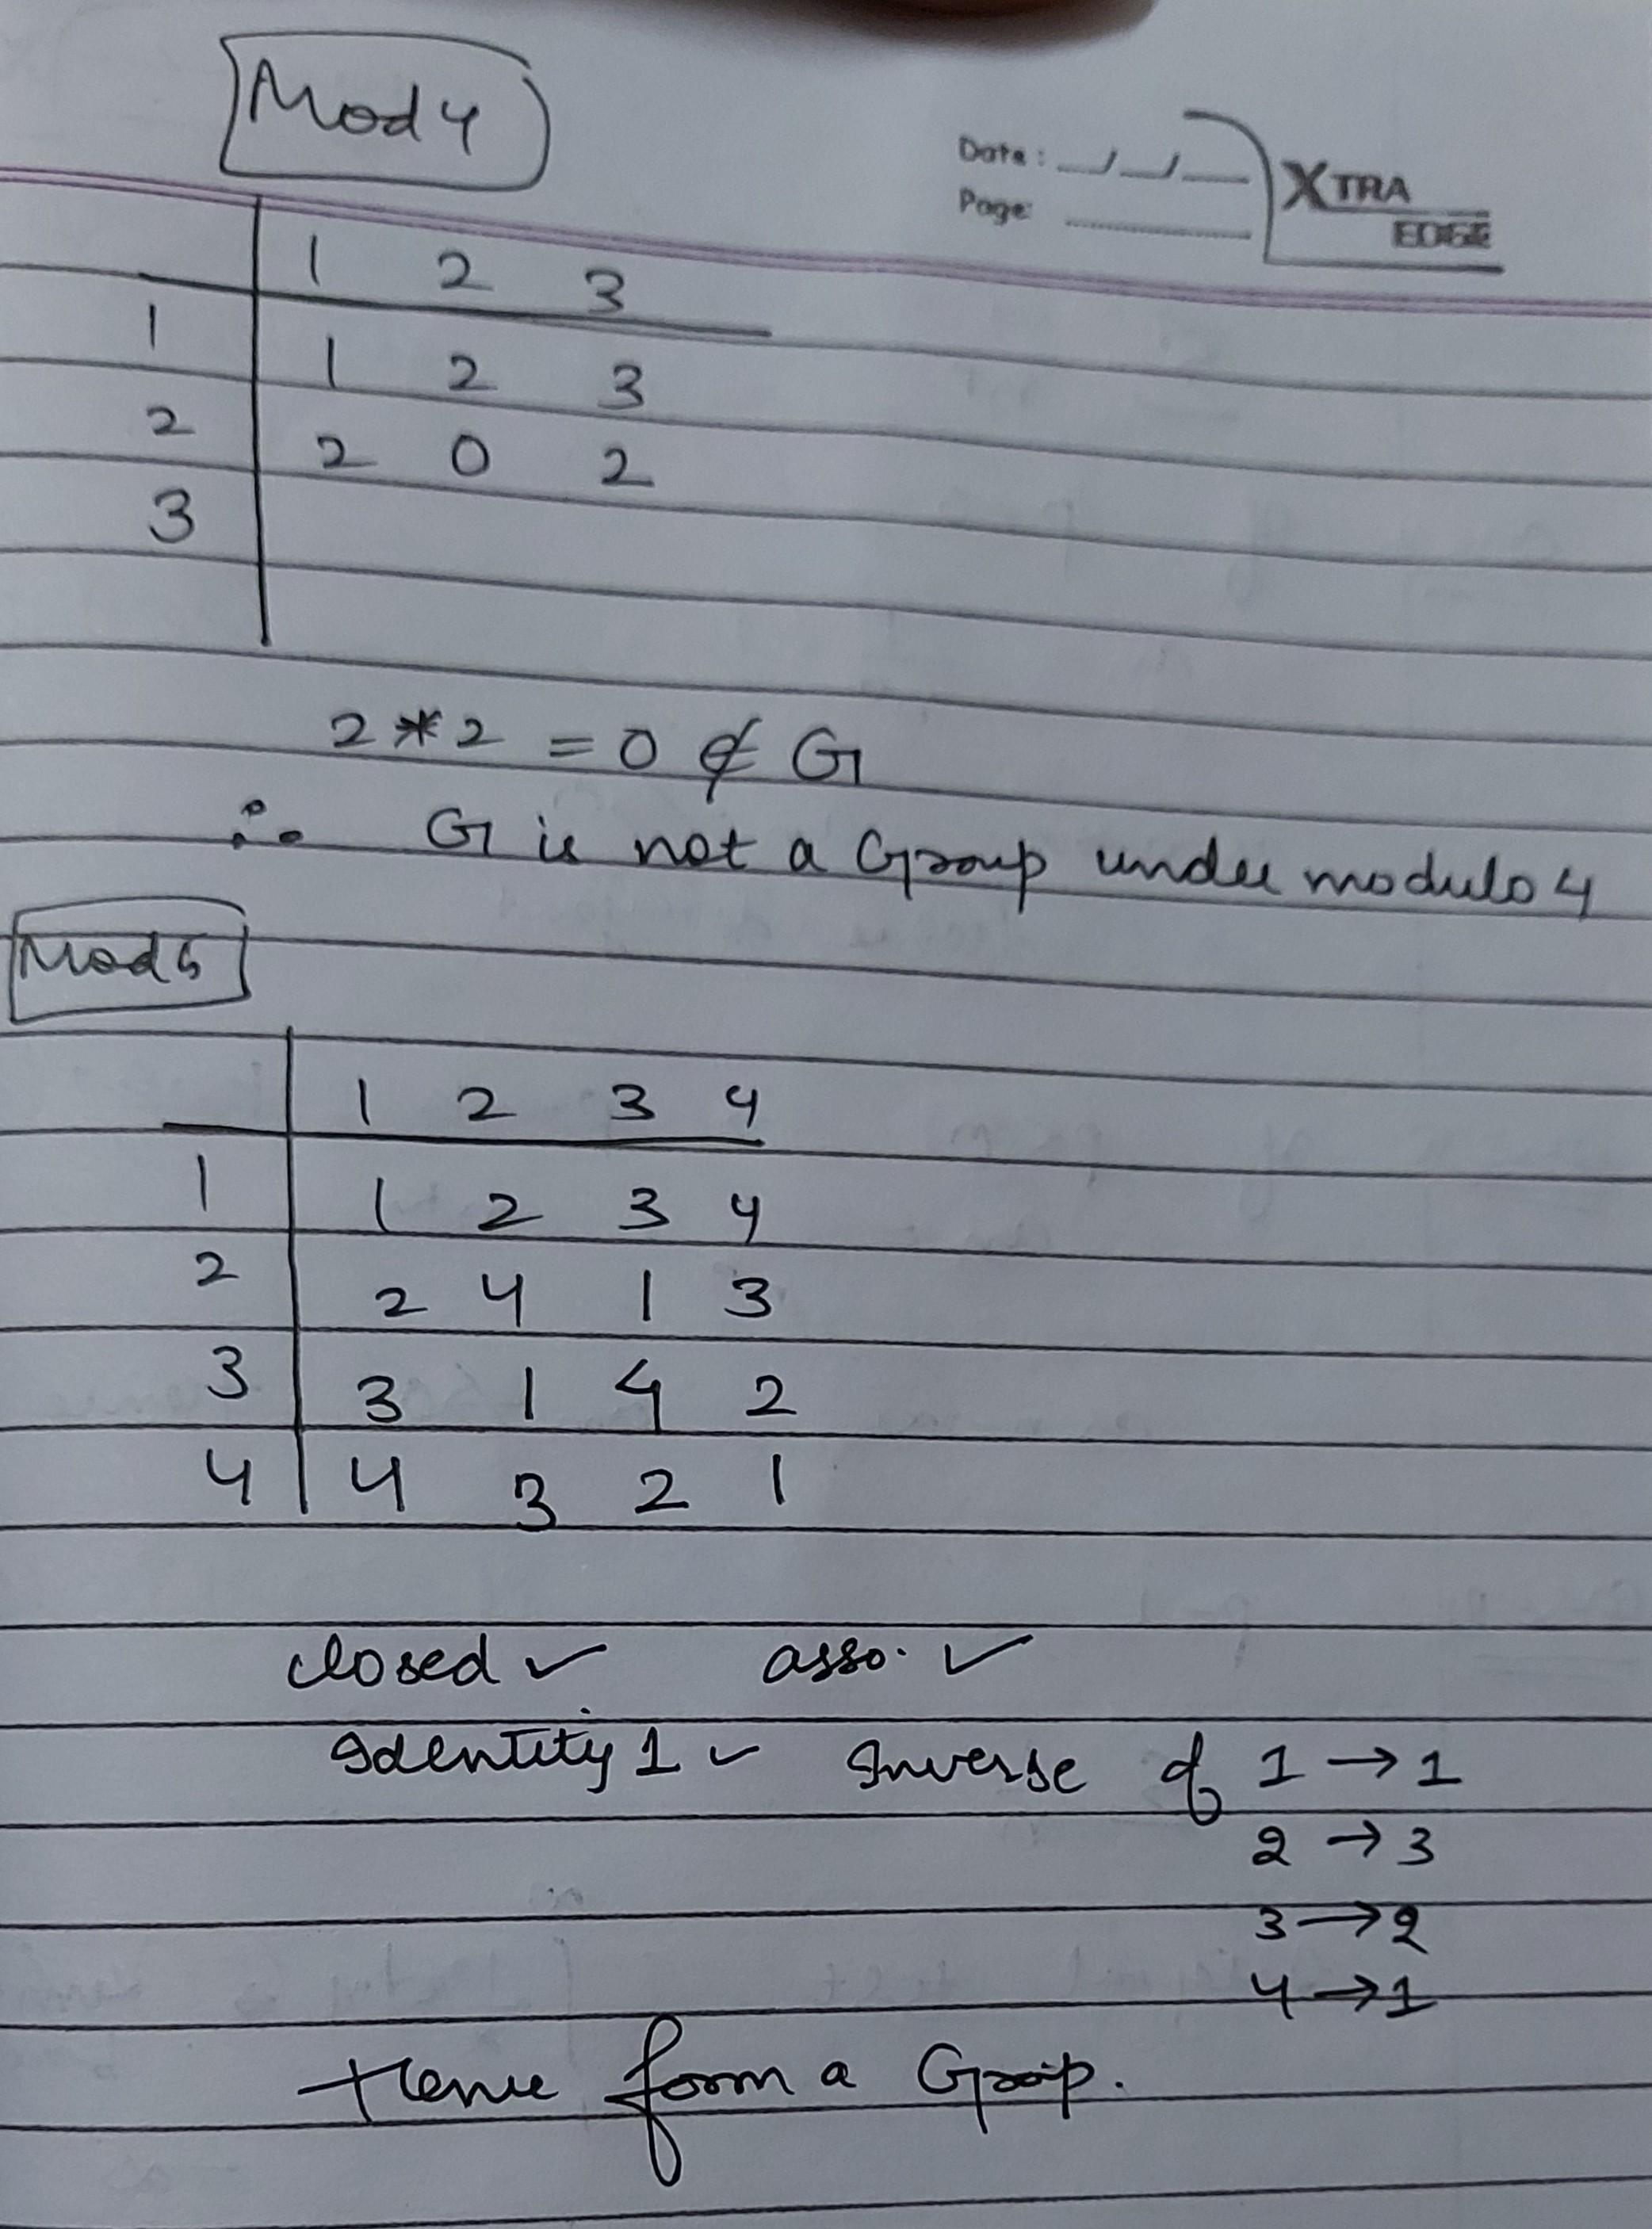 Mod 4
Date : __/__/__
Page:
XTRA
EDGE
1 2 3
1 1 2 3
2 2 0 2
3
2 * 2 = 0 ∉ G
∴ G is not a Group under modulo 4
Mod 5
1 2 3 4
1 1 2 3 4
2 2 4 1 3
3 3 1 4 2
4 4 3 2 1
closed ✓ asso. ✓
Identity 1 ✓ Inverse of 1 → 1
2 → 3
3 → 2
4 → 1
Hence form a Group.